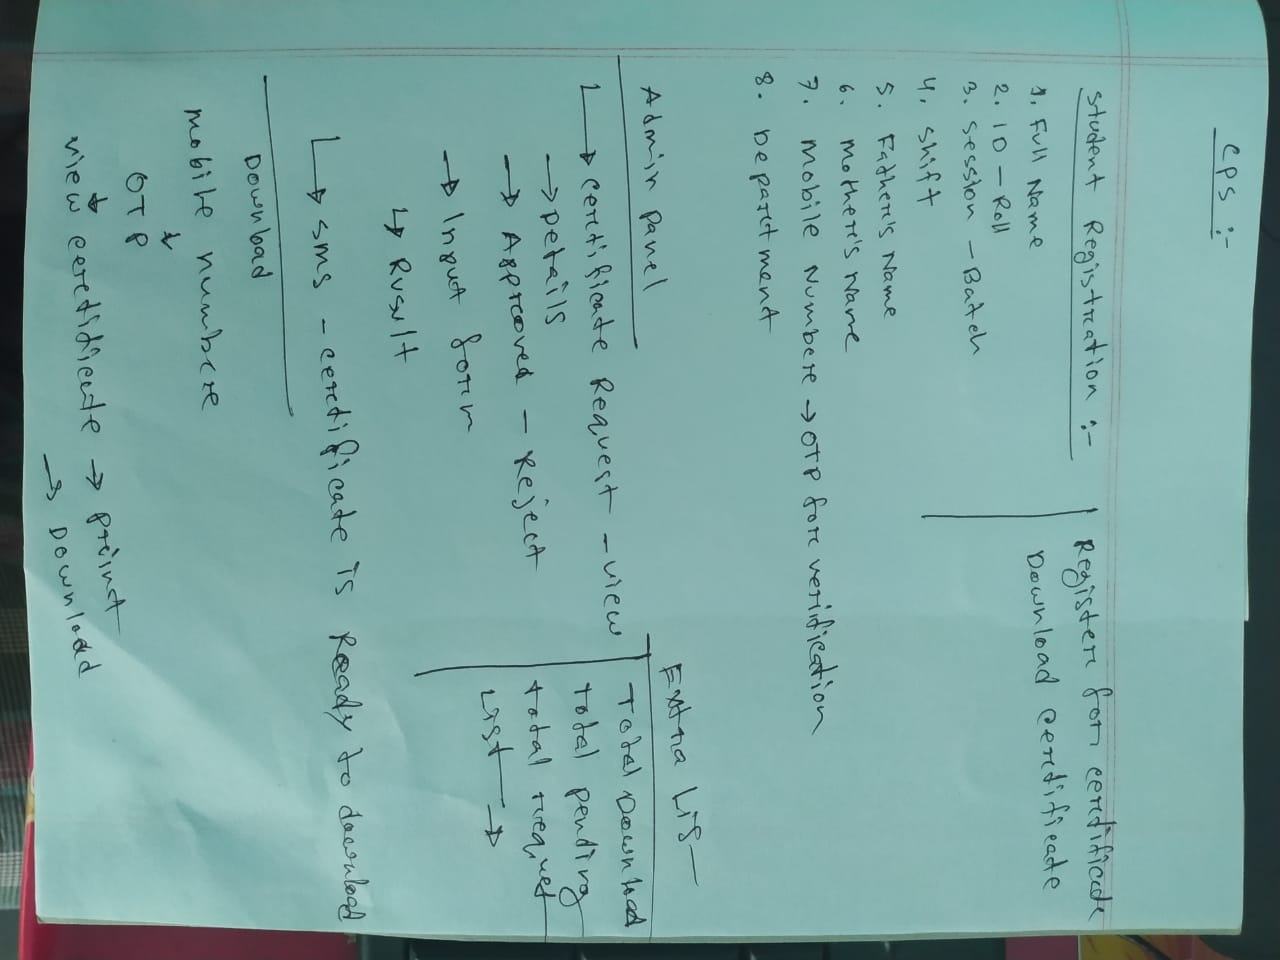 CPS :-
Student Registration :-
1. Full Name
2. ID - Roll
3. Session - Batch
4. Shift
5. Father's Name
6. Mother's Name
7. Mobile Number → OTP for verification
8. Department
Register for certificate
Download certificate
Admin Panel
↳ Certificate Request - view
→ Details
→ Approved - Reject
→ Input form
↳ Result
↳ SMS - certificate is Ready to download
Extra List
Total Download
Total pending
Total request
List →
Download
Mobile number
↓
OTP
↓
view certificate → print
→ Download